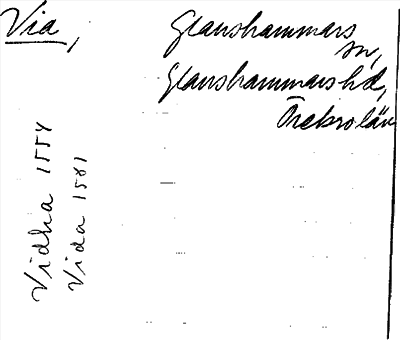 Via,
Glanshammars
sn,
Glanshammars hd,
Örebro län
Vidha 1554
Vida 1581